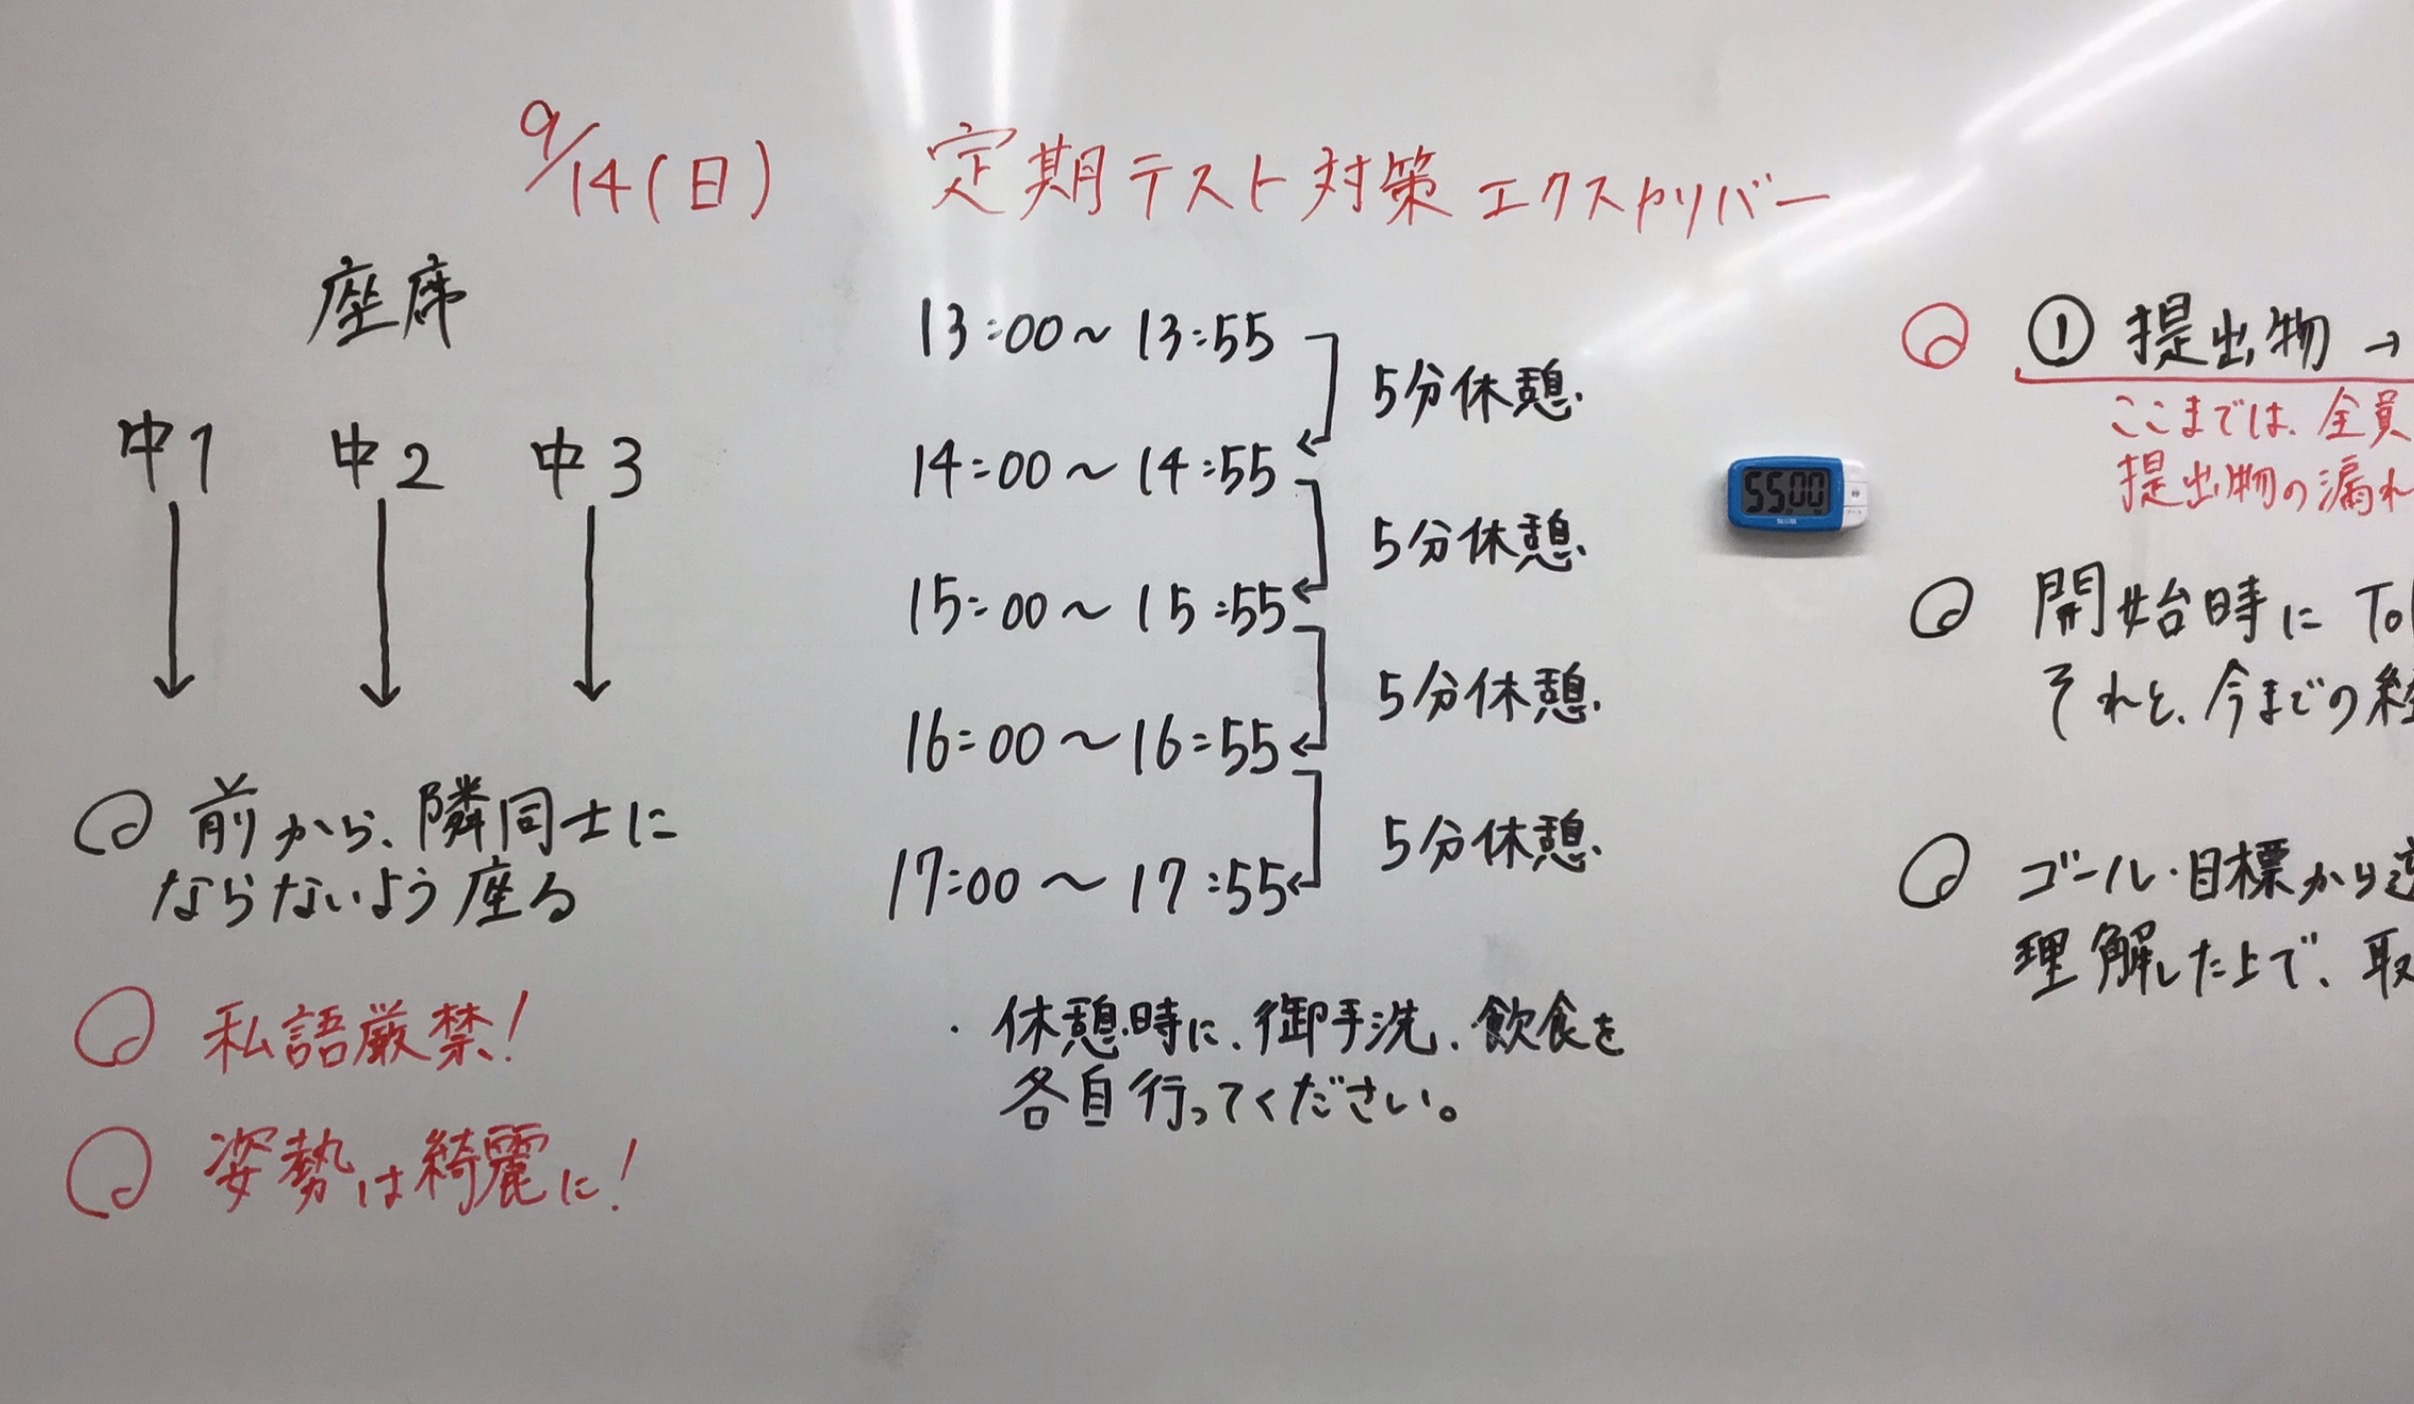 9/14(日) 定期テスト対策 エクスカリバー
座席
中1 中2 中3
前から、隣同士に
ならないよう座る
私語厳禁!
姿勢は綺麗に!
13:00〜13:55
5分休憩.
14:00〜14:55
5分休憩.
15:00〜15:55
5分休憩.
16:00〜16:55
5分休憩.
17:00〜17:55
・休憩時に、御手洗、飲食を
各自行ってください。
55 00
① 提出物→
ここまでは、全員
提出物の漏れ
開始時に To
それと、今までの
ゴール・目標から
理解した上で、取